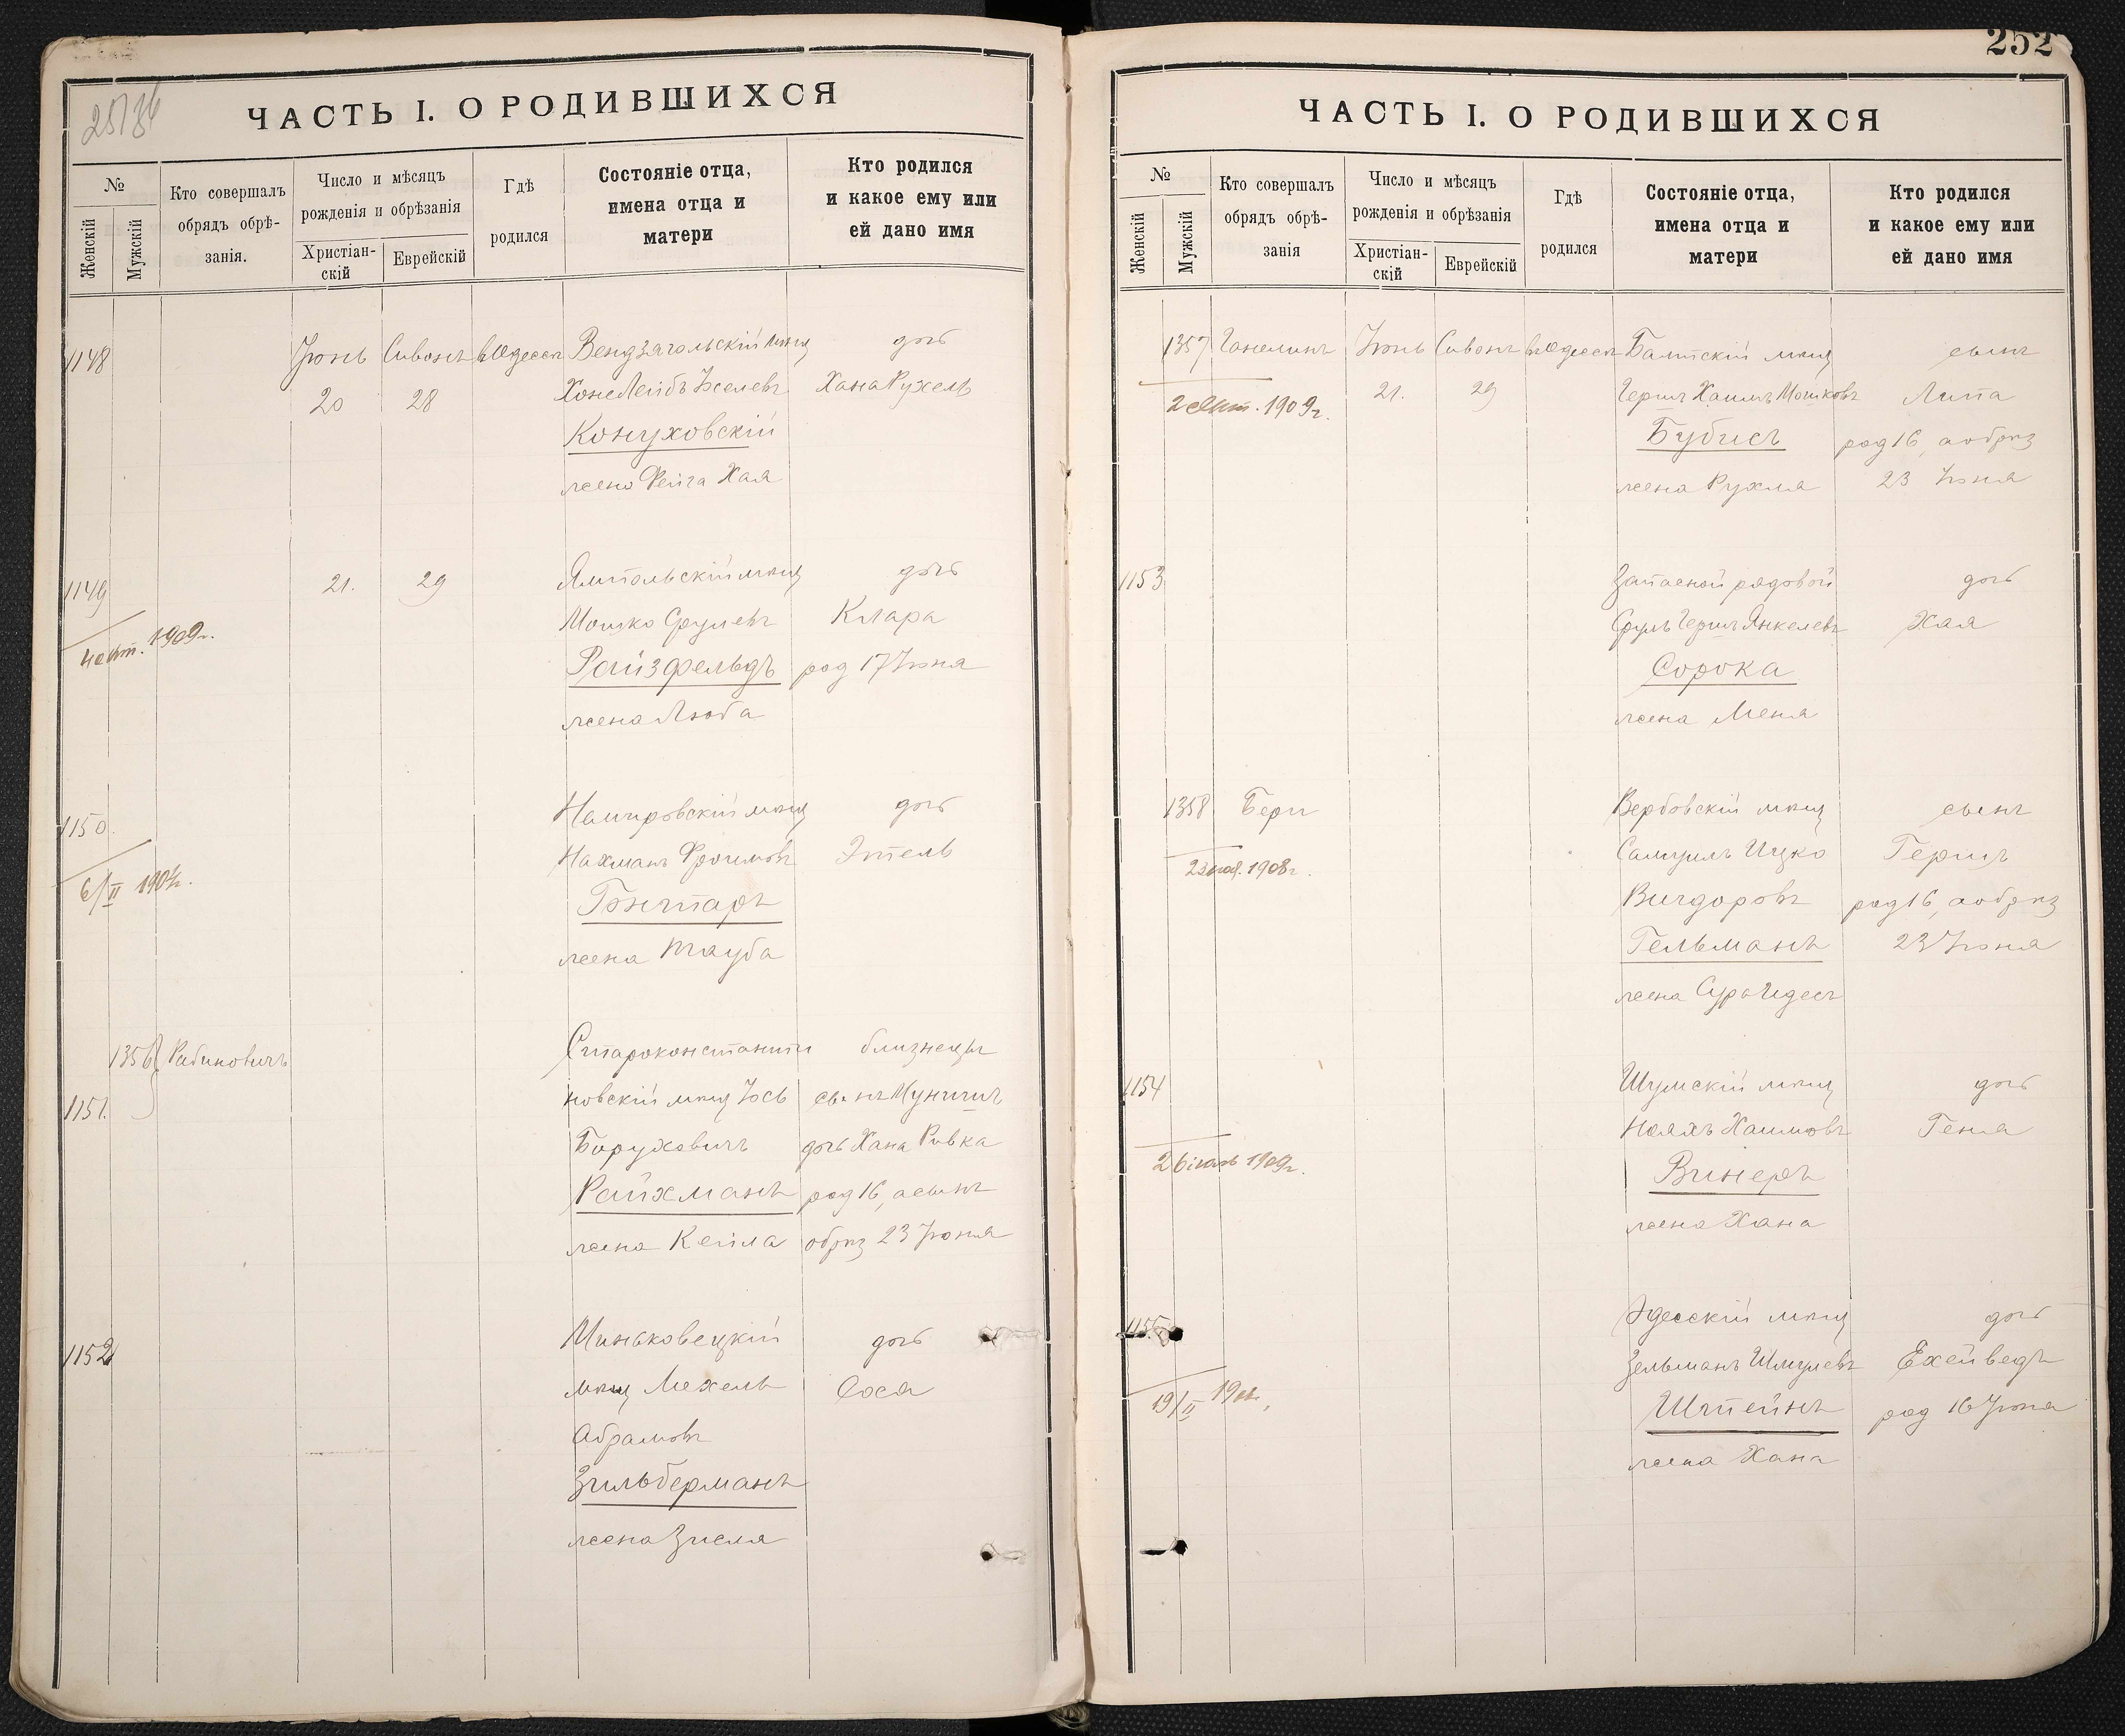 252
25/36
ЧАСТЬ I. О РОДИВШИХСЯ
№
Женскій
Мужскій
Кто совершалъ
обрядъ обрѣ-
занія.
Число и мѣсяцъ
рожденія и обрѣзанія
Христіан-
скій
Еврейскій
Гдѣ
родился
Состояніе отца,
имена отца и
матери
Кто родился
и какое ему или
ей дано имя
1148
Іюнь Сивонъ въ Одессѣ
20 28
мѣщ
Хоне Лейбъ
Конуховскій
жена Фейга Хая
дочь
Хана Рухель
1149
4 1909г.
21. 29
Ямпольскій мѣщ
Мошко Срулевъ
Райзфельдъ
жена Люба
дочь
Клара
род 17 Іюня
1150.
6/II
Немировскій мѣщ
Нахманъ Фроимовъ
Гонтаръ
жена Тауба
дочь
Этель
1356
1151.
Рабиновичъ
Староконстанти
новскій мѣщ Іось
Боруховичъ
Райхманъ
жена Кейла
близнецы
сынъ
дочь Хана Ривка
род 16, а сынъ
обрѣз 23 Іюня
1152
Миньковецкій
мѣщ Мехель
Абрамовъ
Зильберманъ
жена Зисля
дочь
Сося
ЧАСТЬ I. О РОДИВШИХСЯ
№
Женскій
Мужскій
Кто совершалъ
обрядъ обрѣ-
занія
Число и мѣсяцъ
рожденія и обрѣзанія
Христіан-
скій
Еврейскій
Гдѣ
родился
Состояніе отца,
имена отца и
матери
Кто родился
и какое ему или
ей дано имя
1357
2 1909г.
Ганелинъ
Іюнь Сивонъ въ Одессѣ
21. 29
Балтскій мѣщ
Гершъ Хаимъ Мошковъ
Бубисъ
жена Рухля
сынъ
Липа
род 16, а обрѣз
23 Іюня
1153
Запасной рядовой
Сруль Гершъ Янкелевъ
Сорока
жена Меня
дочь
Хая
1358
1908г.
Бери
Вербовскій мѣщ
Самуилъ Ицко
Вигдоровъ
Гельманъ
жена Сура Идесъ
сынъ
Гершъ
род 16, а обрѣз
23 Іюня
1154
1909г.
Шумскій мѣщ
Нояхъ Хаимовъ
Винеръ
жена Хана
дочь
Геня
1155
19/II
Одесскій мѣщ
Зельманъ Шмулевъ
Штейнъ
жена Хана
дочь
Ехейведъ
род 16 Іюня